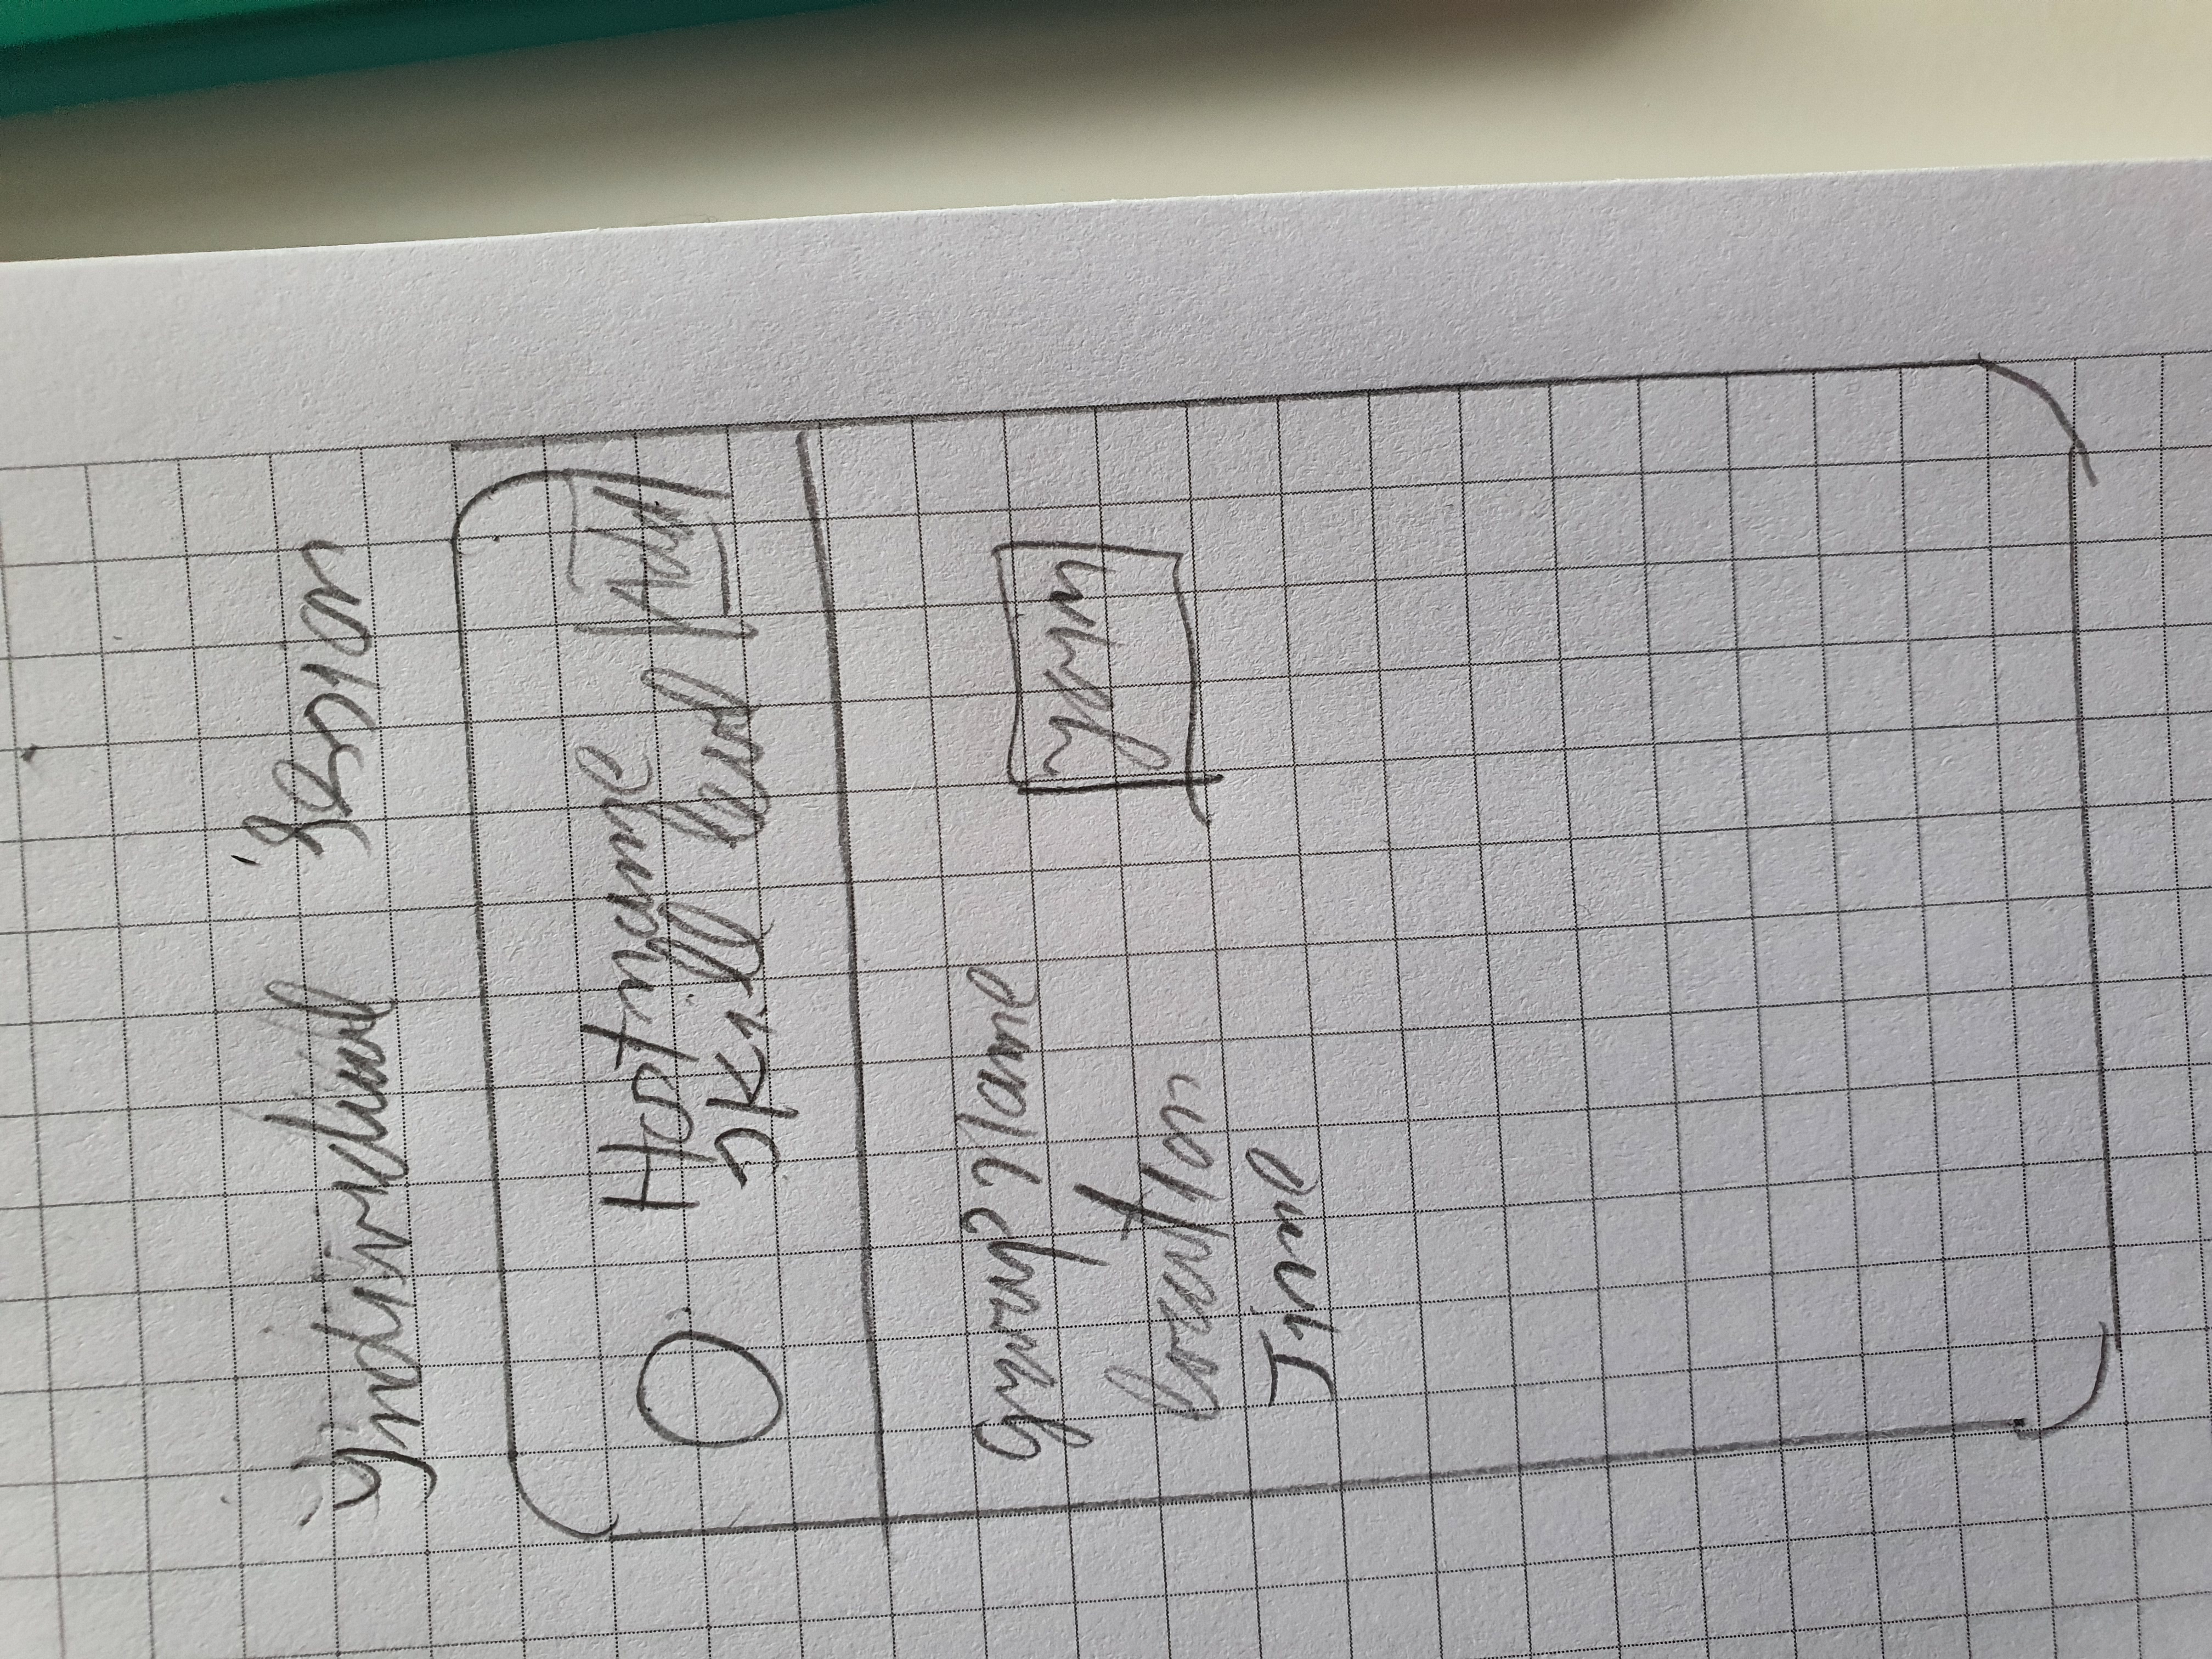 Individual Session
Hostname
skill level
Add
group name
location
Time